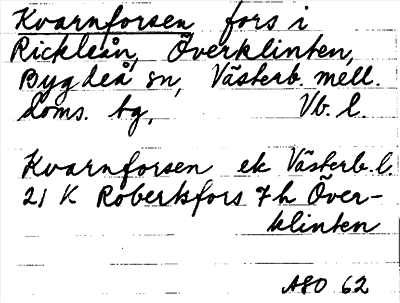 Kvarnforsen fors i
Rickleån, Överklinten,
Bygdeå sn, Västerb. mell.
doms. tg, Vb. l.
Kvarnforsen ek Västerb. l.
21 K Robertsfors 7h Över-
klinten
A80 62